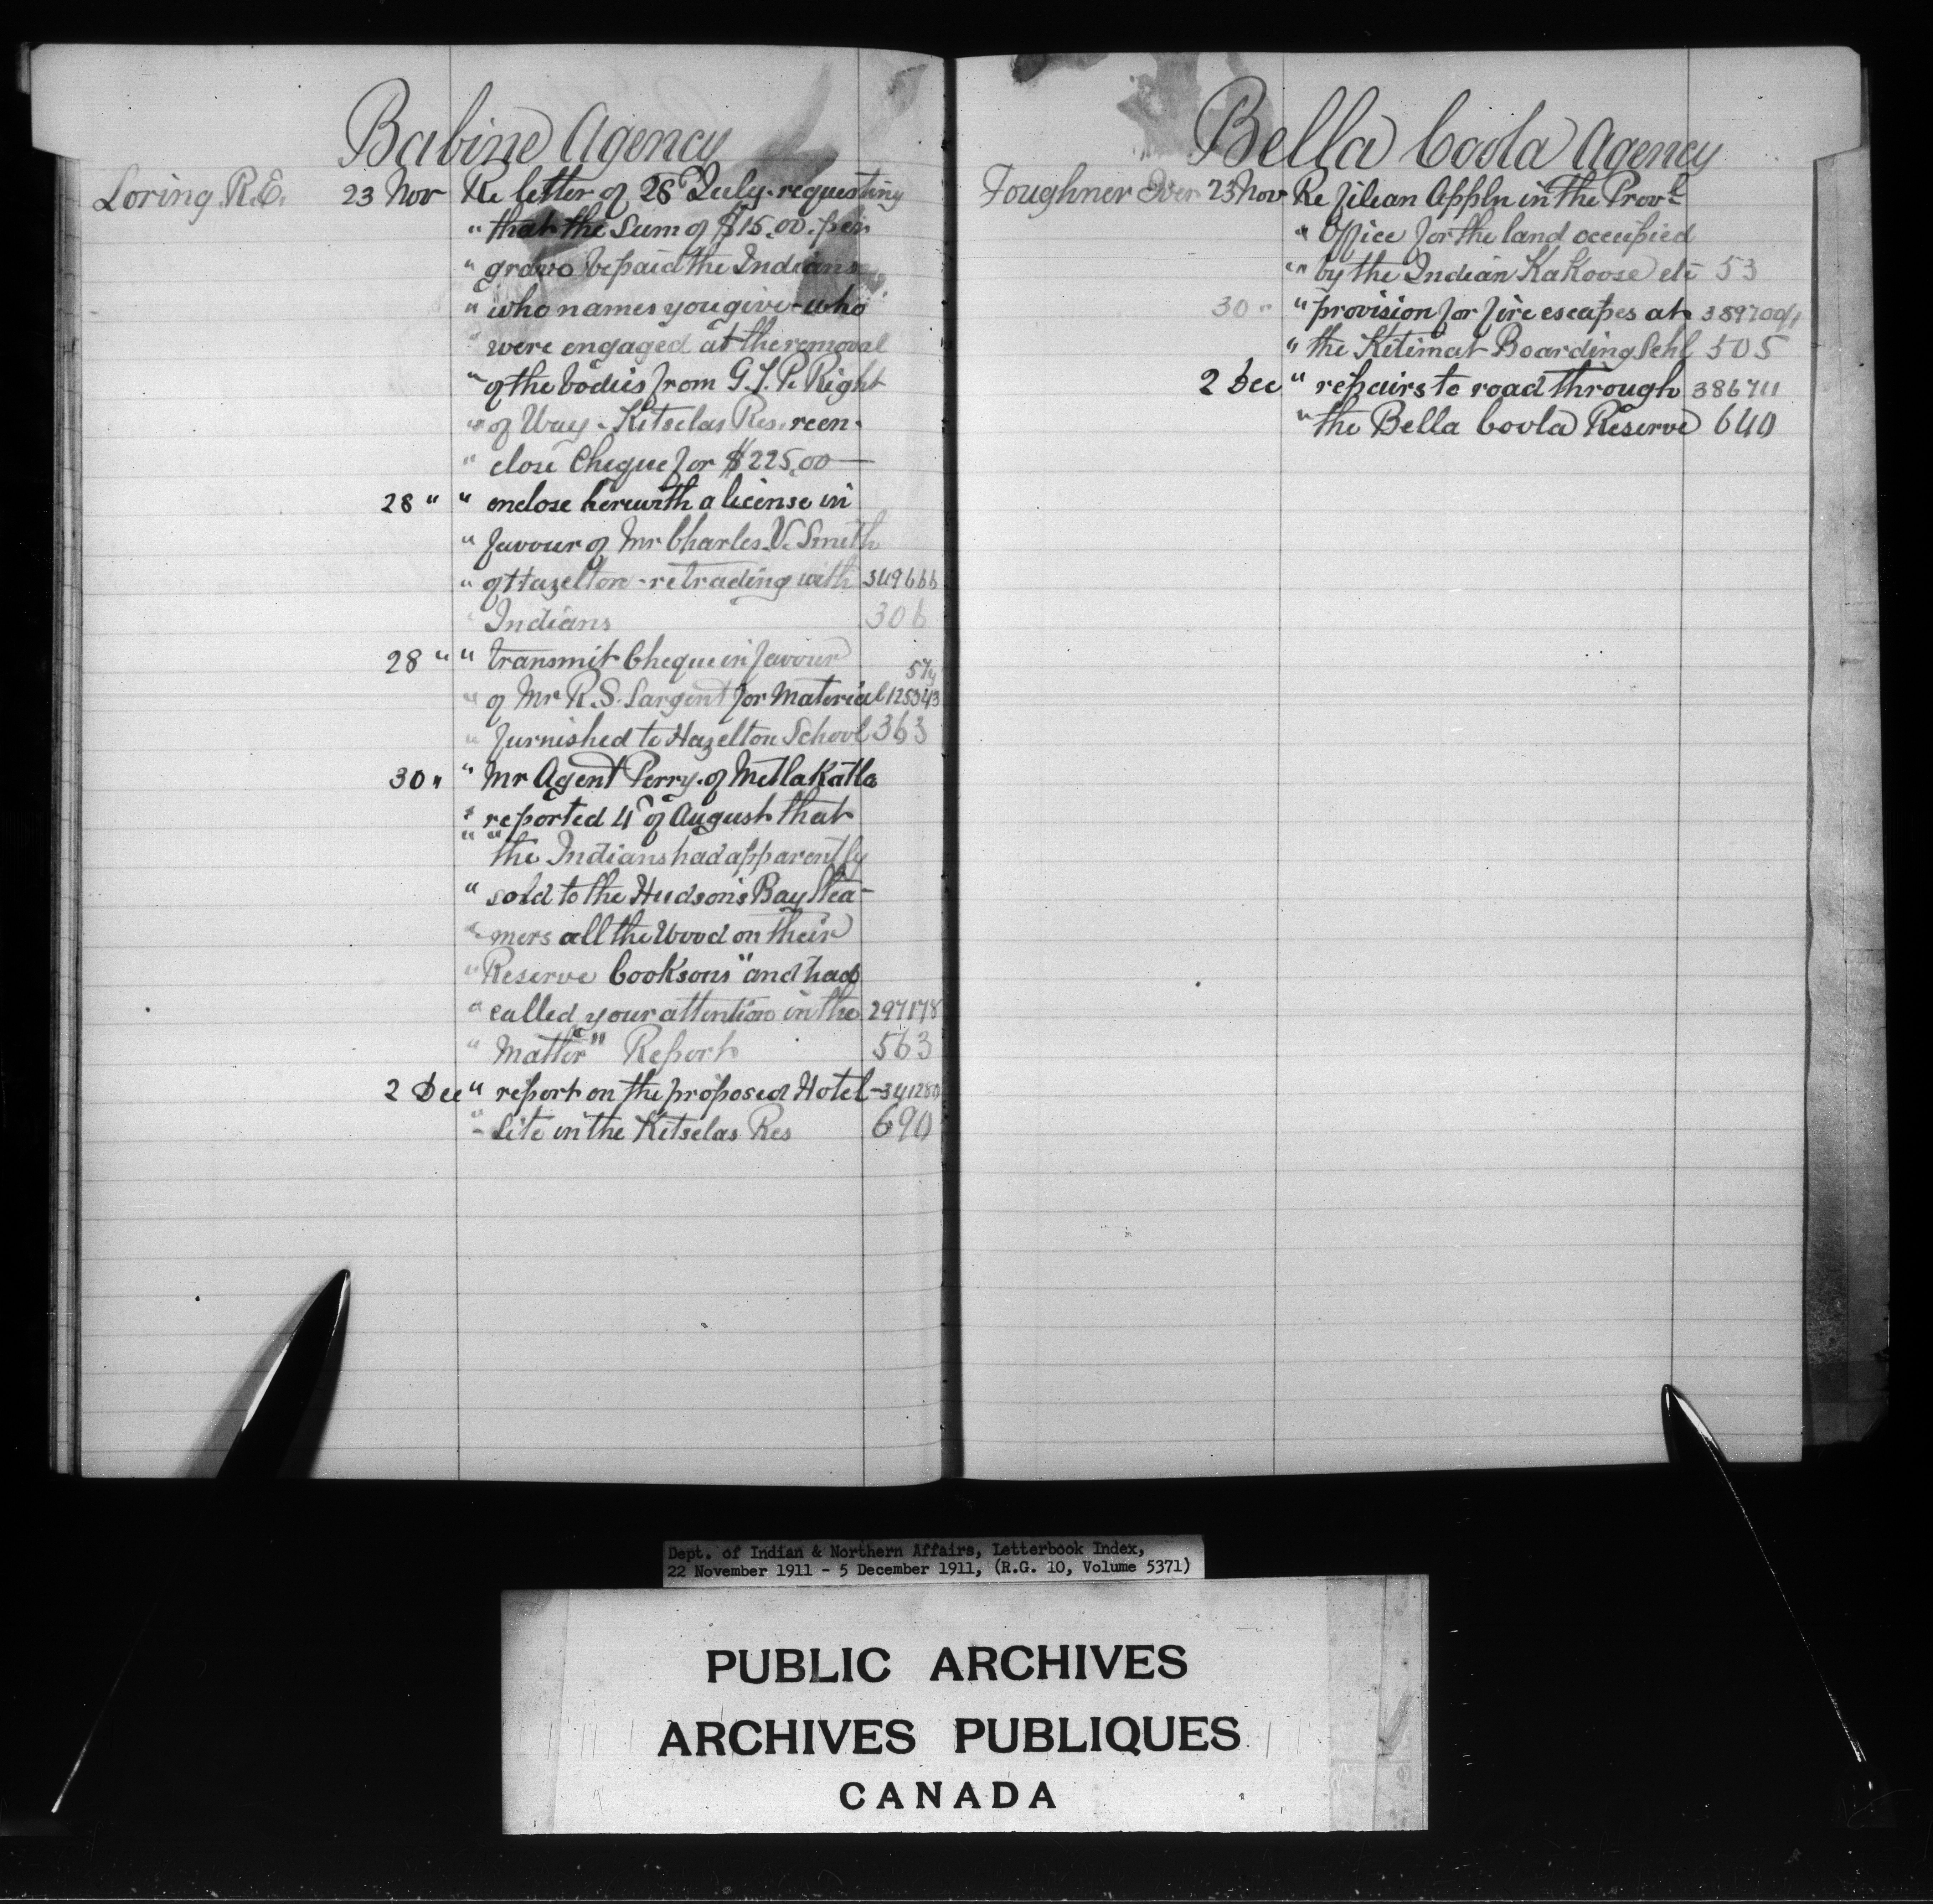 Babine Agency
Loring R.E. 23 Nov Re letter of 28 July requesting
" that the Sum of $15.00 per
" grave be paid the Indians
" who names you give - who
" were engaged at the removal
" of the bodies from G.T.P. Right
" of Way - Kitselas Res. reen-
" close Cheque for $225.00
28 " " enclose herewith a license in
" favour of Mr Charles V. Smith
" of Hazelton - re trading with 349666
" Indians 306
28 " " transmit Cheque in favour
" of Mr R.S. Sargent for material 125343
" furnished to Hazelton School 363
30 " " Mr Agent Perry of Metlakatla
" reported 4" of August that
" " the Indians had apparently
" sold to the Hudson's Bay Stea-
" mers all the Wood on their
" Reserve Cooksons" and had
" called your attention in the 297178
" Matter" Report 563
2 Dec " report on the proposed Hotel - 341280
" Site in the Kitselas Res 690
Bella Coola Agency
Foughner Iver 23 Nov Re filean Appln in the Provl
" Office for the land occupied
" by the Indian Kakoose etc 53
30 " " provision for fire escapes at
" the Kitimat Boarding Schl 505
2 Dec " repairs to road through 386711
" the Bella Coola Reserve 640
Dept. of Indian & Northern Affairs, Letterbook Index,
22 November 1911 - 5 December 1911, (R.G. 10, Volume 5371)
PUBLIC ARCHIVES
ARCHIVES PUBLIQUES
CANADA